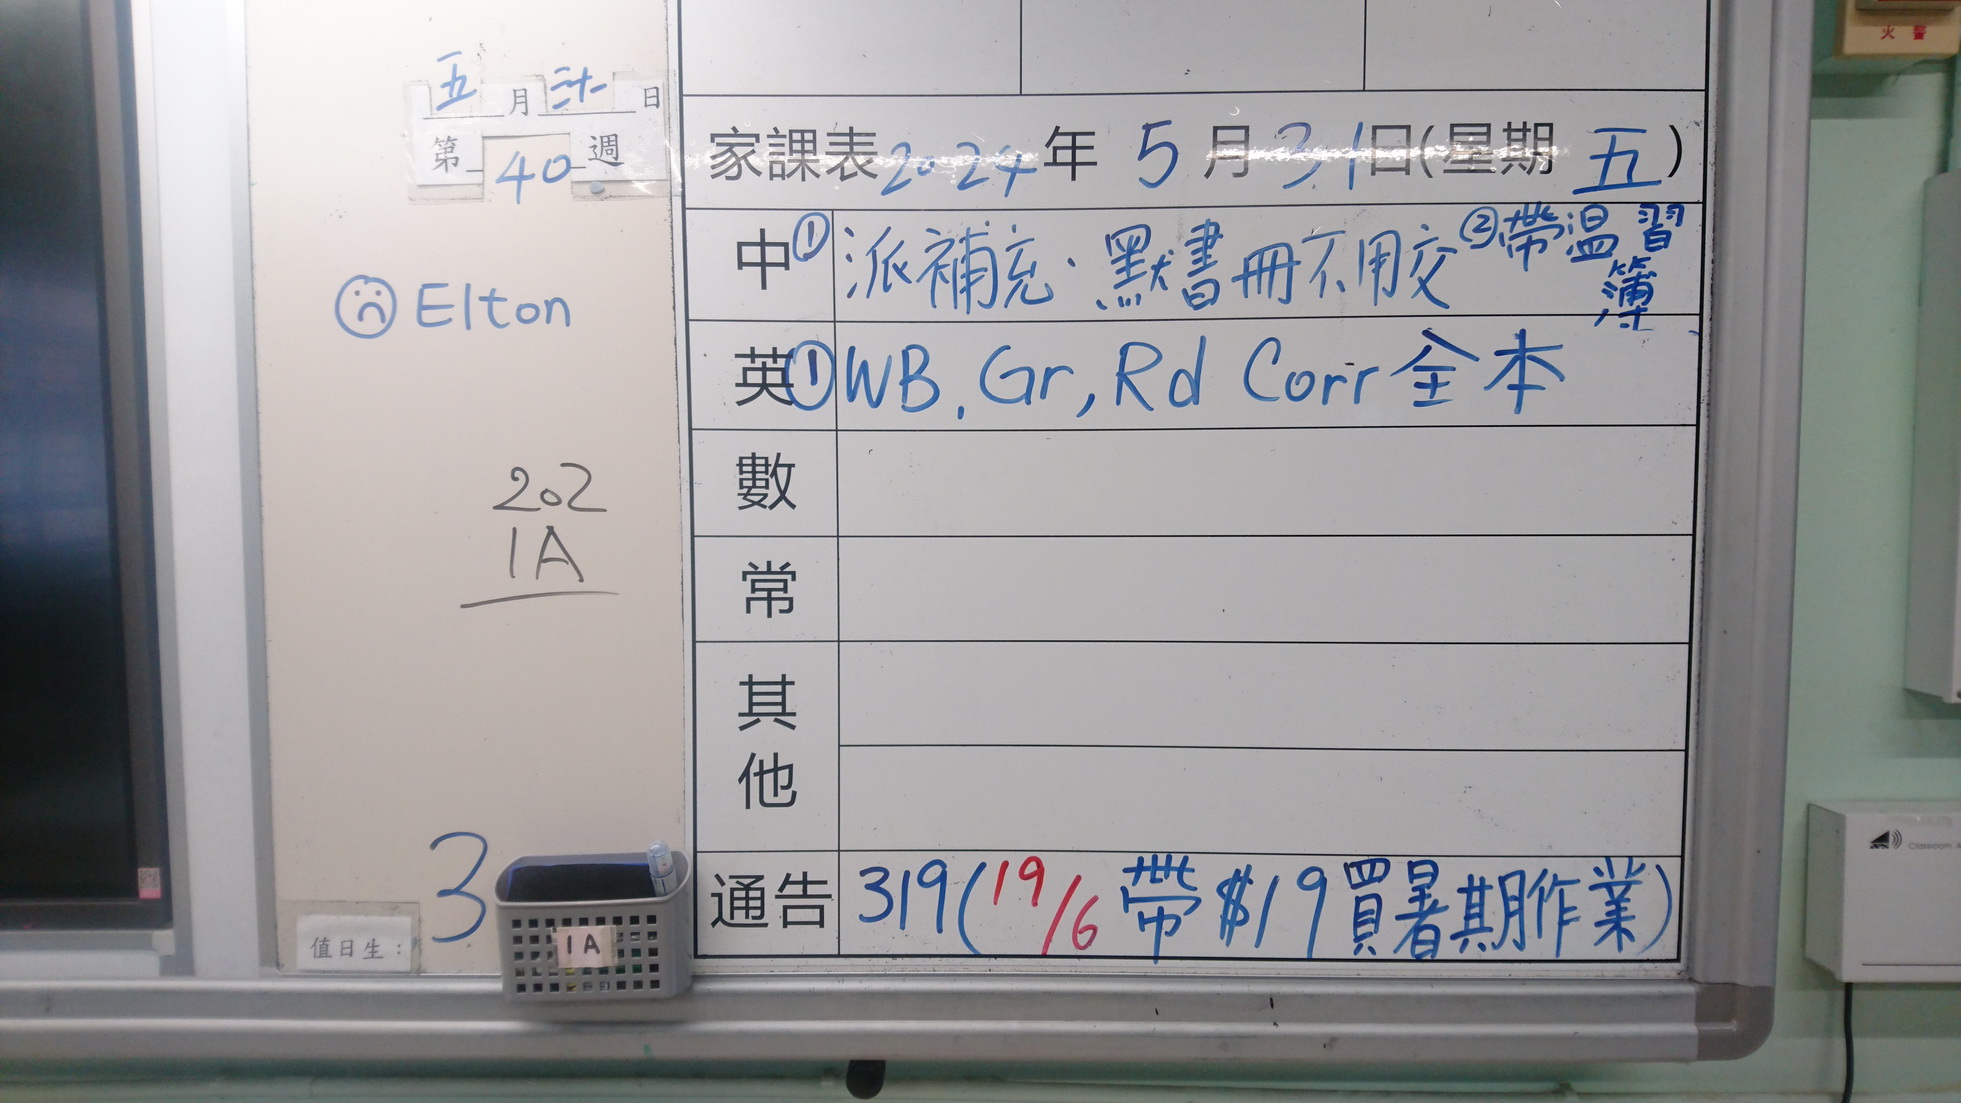 五月三十一日
第40週
Elton
202
1A
3
值日生：
1A
家課表2024年5月31日(星期五)
中①派補充．默書冊不用交②帶温習簿
英①WB, Gr, Rd Corr全本
數
常
其他
通告 319(19/6帶$19買暑期作業)
火警